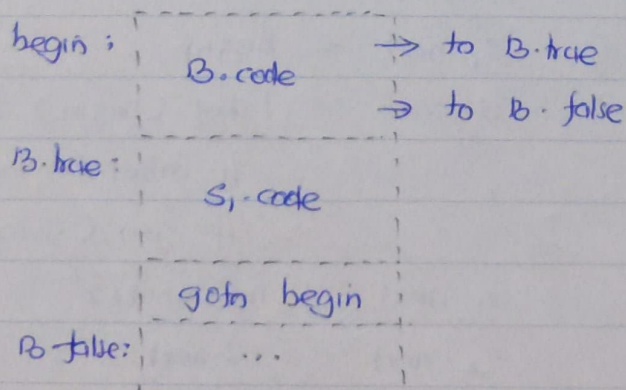 begin : B.code → to B.true
→ to B. false
B.true: S₁.code
goto begin
B.false: ...